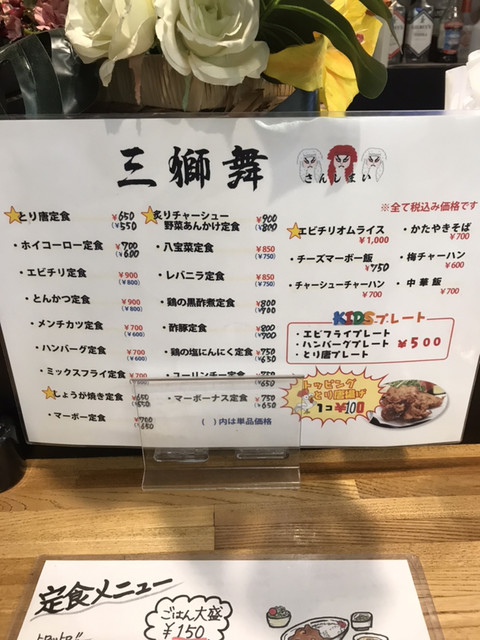 三獅舞
さんしまい
※全て税込み価格です
とり唐定食 ¥650
(¥550)
・ホイコーロー定食 ¥700
(¥600)
・エビチリ定食 ¥900
(¥800)
・とんかつ定食 ¥900
(¥800)
・メンチカツ定食 ¥700
(¥600)
・ハンバーグ定食 ¥700
(¥600)
・ミックスフライ定食 ¥700
しょうが焼き定食 ¥650
・マーボー定食 ¥700
炙りチャーシュー
野菜あんかけ定食 ¥900
(¥800)
・八宝菜定食 ¥850
(¥750)
・レバニラ定食 ¥850
(¥750)
・鶏の黒酢煮定食 ¥800
¥700
・酢豚定食 ¥800
・鶏の塩にんにく定食 ¥750
¥650
・ユーリンチー定食 ¥750
¥650
・マーボーナス定食 ¥750
¥650
( )内は単品価格
エビチリオムライス
¥1,000
・チーズマーボー飯
¥750
・チャーシューチャーハン
¥700
・かたやきそば
¥700
・梅チャーハン
¥600
・中華飯
¥700
KIDSプレート
・エビフライプレート
・ハンバーグプレート
・とり唐プレート
¥500
トッピング
とり唐揚げ
1コ ¥100
定食メニュー
ごはん大盛
¥150